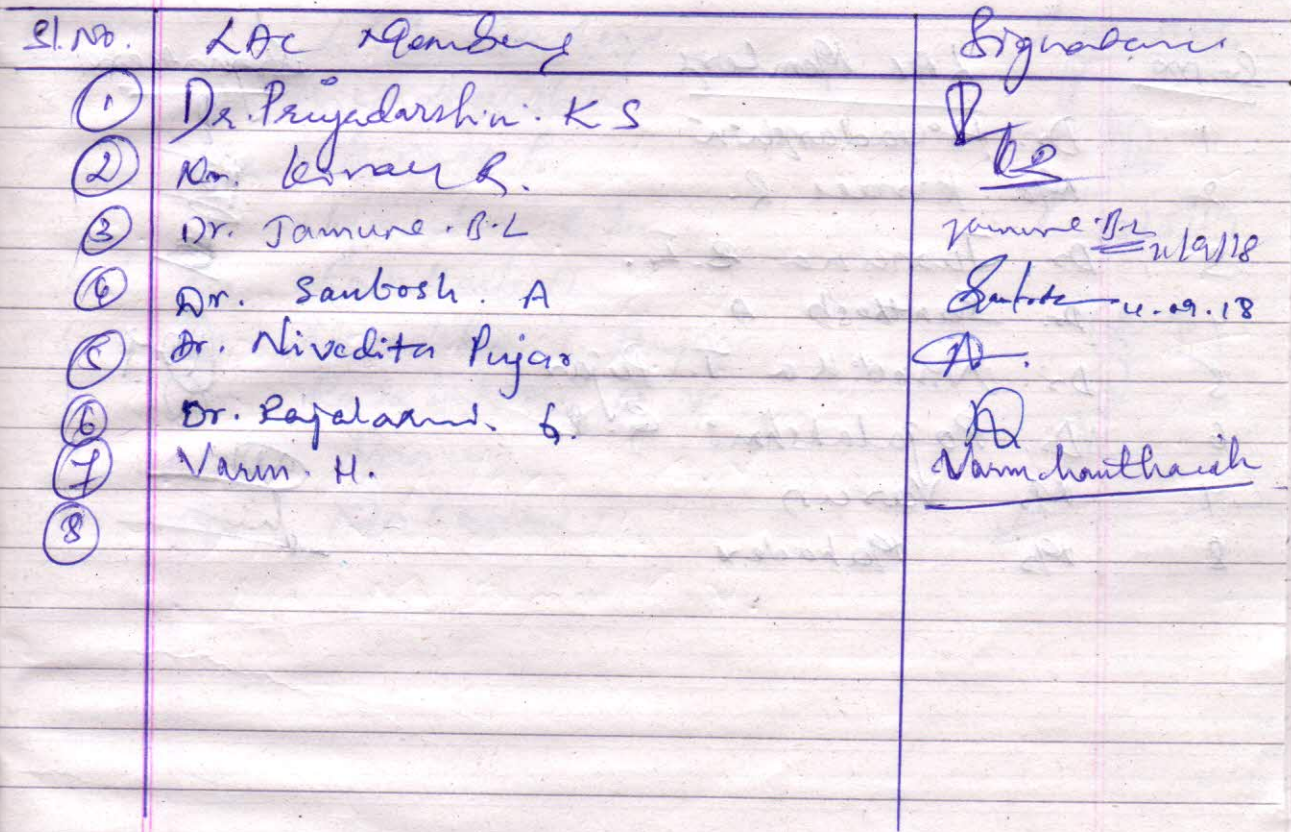 Sl. No. LAC Members Signature
1 Dr. Priyadarshini. K S
2 Dr. Kiran R.
3 Dr. Jamuna. B.L Jamuna. B.L 11/9/18
4 Dr. Santosh. A Santosh 11.09.18
5 Dr. Nivedita Pujar
6 Dr. Rajalaxmi. G.
7 Varun. H. Varun
8